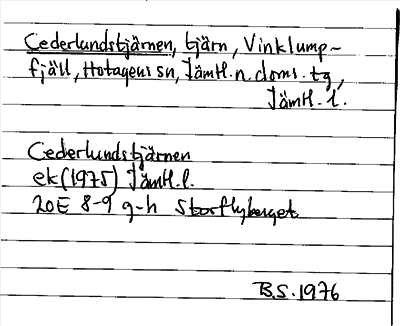 Cederlundstjärnen, tjärn, Vinklump-
fjäll, Hotagens sn, Jämtl. n. doms. tg,
Jämtl. l.
Cederlundstjärnen
ek (1975) Jämtl. l.
20E 8-9 g-h Storflyberget
B.S. 1976